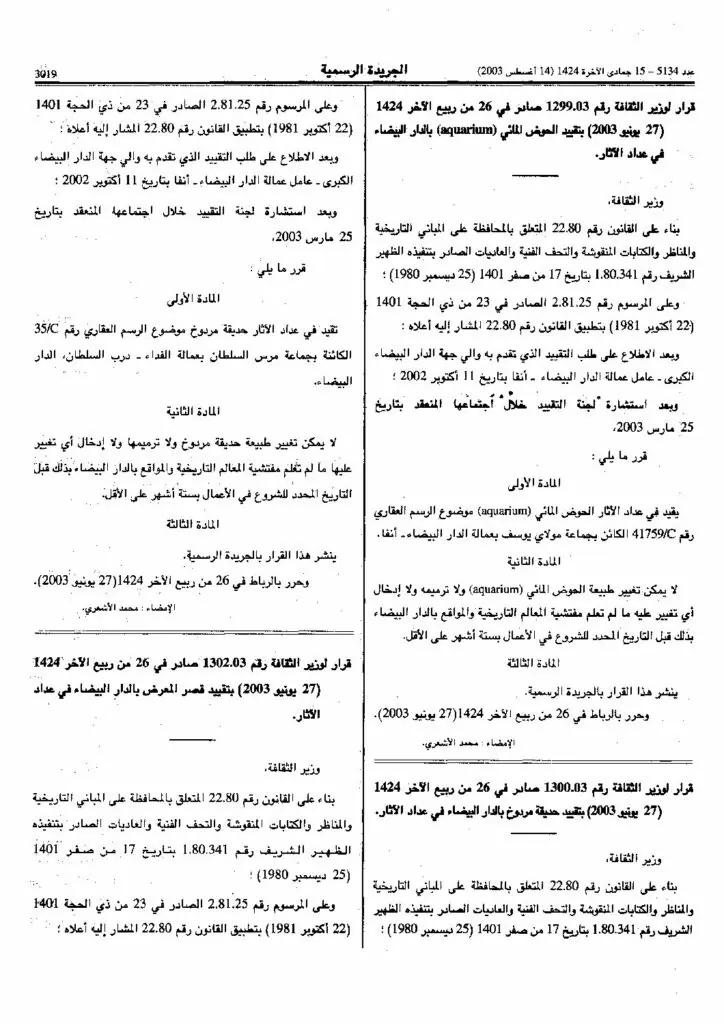 عدد 5134 – 15 جمادى الآخرة 1424 (14 أغسطس 2003)
الجريدة الرسمية
3019
قرار لوزير الثقافة رقم 1299.03 صادر في 26 من ربيع الآخر 1424
(27 يونيو 2003) بتقييد الحوض المائي (aquarium) بالدار البيضاء
في عداد الآثار.
وزير الثقافة،
بناء على القانون رقم 22.80 المتعلق بالمحافظة على المباني التاريخية
والمناظر والكتابات المنقوشة والتحف الفنية والعاديات الصادر بتنفيذه الظهير
الشريف رقم 1.80.341 بتاريخ 17 من صفر 1401 (25 ديسمبر 1980) ؛
وعلى المرسوم رقم 2.81.25 الصادر في 23 من ذي الحجة 1401
(22 أكتوبر 1981) بتطبيق القانون رقم 22.80 المشار إليه أعلاه ؛
وبعد الاطلاع على طلب التقييد الذي تقدم به والي جهة الدار البيضاء
الكبرى - عامل عمالة الدار البيضاء - أنفا بتاريخ 11 أكتوبر 2002 ؛
وبعد استشارة لجنة التقييد خلال اجتماعها المنعقد بتاريخ
25 مارس 2003،
قرر ما يلي :
المادة الأولى
يقيد في عداد الآثار الحوض المائي (aquarium) موضوع الرسم العقاري
رقم 41759/C الكائن بجماعة مولاي يوسف بعمالة الدار البيضاء - أنفا.
المادة الثانية
لا يمكن تغيير طبيعة الحوض المائي (aquarium) ولا ترميمه ولا إدخال
أي تغيير عليه ما لم تعلم مفتشية المعالم التاريخية والمواقع بالدار البيضاء
بذلك قبل التاريخ المحدد للشروع في الأعمال بستة أشهر على الأقل.
المادة الثالثة
ينشر هذا القرار بالجريدة الرسمية.
وحرر بالرباط في 26 من ربيع الآخر 1424 (27 يونيو 2003).
الإمضاء : محمد الأشعري.
قرار لوزير الثقافة رقم 1300.03 صادر في 26 من ربيع الآخر 1424
(27 يونيو 2003) بتقييد حديقة مردوخ بالدار البيضاء في عداد الآثار.
وزير الثقافة،
بناء على القانون رقم 22.80 المتعلق بالمحافظة على المباني التاريخية
والمناظر والكتابات المنقوشة والتحف الفنية والعاديات الصادر بتنفيذه الظهير
الشريف رقم 1.80.341 بتاريخ 17 من صفر 1401 (25 ديسمبر 1980) ؛
وعلى المرسوم رقم 2.81.25 الصادر في 23 من ذي الحجة 1401
(22 أكتوبر 1981) بتطبيق القانون رقم 22.80 المشار إليه أعلاه ؛
وبعد الاطلاع على طلب التقييد الذي تقدم به والي جهة الدار البيضاء
الكبرى - عامل عمالة الدار البيضاء - أنفا بتاريخ 11 أكتوبر 2002 ؛
وبعد استشارة لجنة التقييد خلال اجتماعها المنعقد بتاريخ
25 مارس 2003،
قرر ما يلي :
المادة الأولى
تقيد في عداد الآثار حديقة مردوخ موضوع الرسم العقاري رقم 35/C
الكائنة بجماعة مرس السلطان بعمالة الفداء - درب السلطان، الدار
البيضاء.
المادة الثانية
لا يمكن تغيير طبيعة حديقة مردوخ ولا ترميمها ولا إدخال أي تغيير
عليها ما لم تعلم مفتشية المعالم التاريخية والمواقع بالدار البيضاء بذلك قبل
التاريخ المحدد للشروع في الأعمال بستة أشهر على الأقل.
المادة الثالثة
ينشر هذا القرار بالجريدة الرسمية.
وحرر بالرباط في 26 من ربيع الآخر 1424 (27 يونيو 2003).
الإمضاء : محمد الأشعري.
قرار لوزير الثقافة رقم 1302.03 صادر في 26 من ربيع الآخر 1424
(27 يونيو 2003) بتقييد قصر المعرض بالدار البيضاء في عداد
الآثار.
وزير الثقافة،
بناء على القانون رقم 22.80 المتعلق بالمحافظة على المباني التاريخية
والمناظر والكتابات المنقوشة والتحف الفنية والعاديات الصادر بتنفيذه
الظهير الشريف رقم 1.80.341 بتاريخ 17 من صفر 1401
(25 ديسمبر 1980) ؛
وعلى المرسوم رقم 2.81.25 الصادر في 23 من ذي الحجة 1401
(22 أكتوبر 1981) بتطبيق القانون رقم 22.80 المشار إليه أعلاه ؛